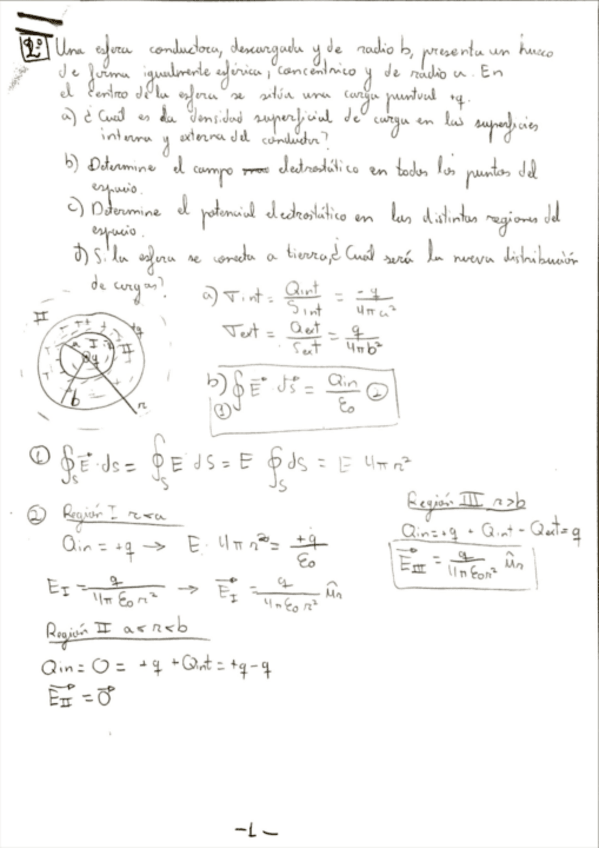 2º Una esfera conductora, descargada y de radio b, presenta un hueco
de forma igualmente esférica, concéntrico y de radio a. En
el centro de la esfera se sitúa una carga puntual +q.
a) ¿Cuál es la densidad superficial de carga en las superficies
interna y externa del conductor?
b) Determine el campo electrostático en todos los puntos del
espacio.
c) Determine el potencial electrostático en las distintas regiones del
espacio.
d) Si la esfera se conecta a tierra, ¿Cuál será la nueva distribución
de cargas?
a) σint = Qint/Sint = -q/4πa²
σext = Qext/Sext = q/4πb²
III
+q
a I
II
q
b
r
b) ∮E⃗ ds⃗ = Qin/ε0 ②
①
① ∮s E⃗·ds = ∮s E dS = E ∮s dS = E 4πr²
② Región I r<a
Qin = +q → E·4πr² = +q/ε0
EI = q/4πε0r² → E⃗I = q/4πε0r² ûr
Región II a<r<b
Qin = 0 = +q + Qint = +q-q
E⃗II = 0⃗
Región III r>b
Qin = +q + Qint - Qext = q
E⃗III = q/4πε0r² ûr
-1-